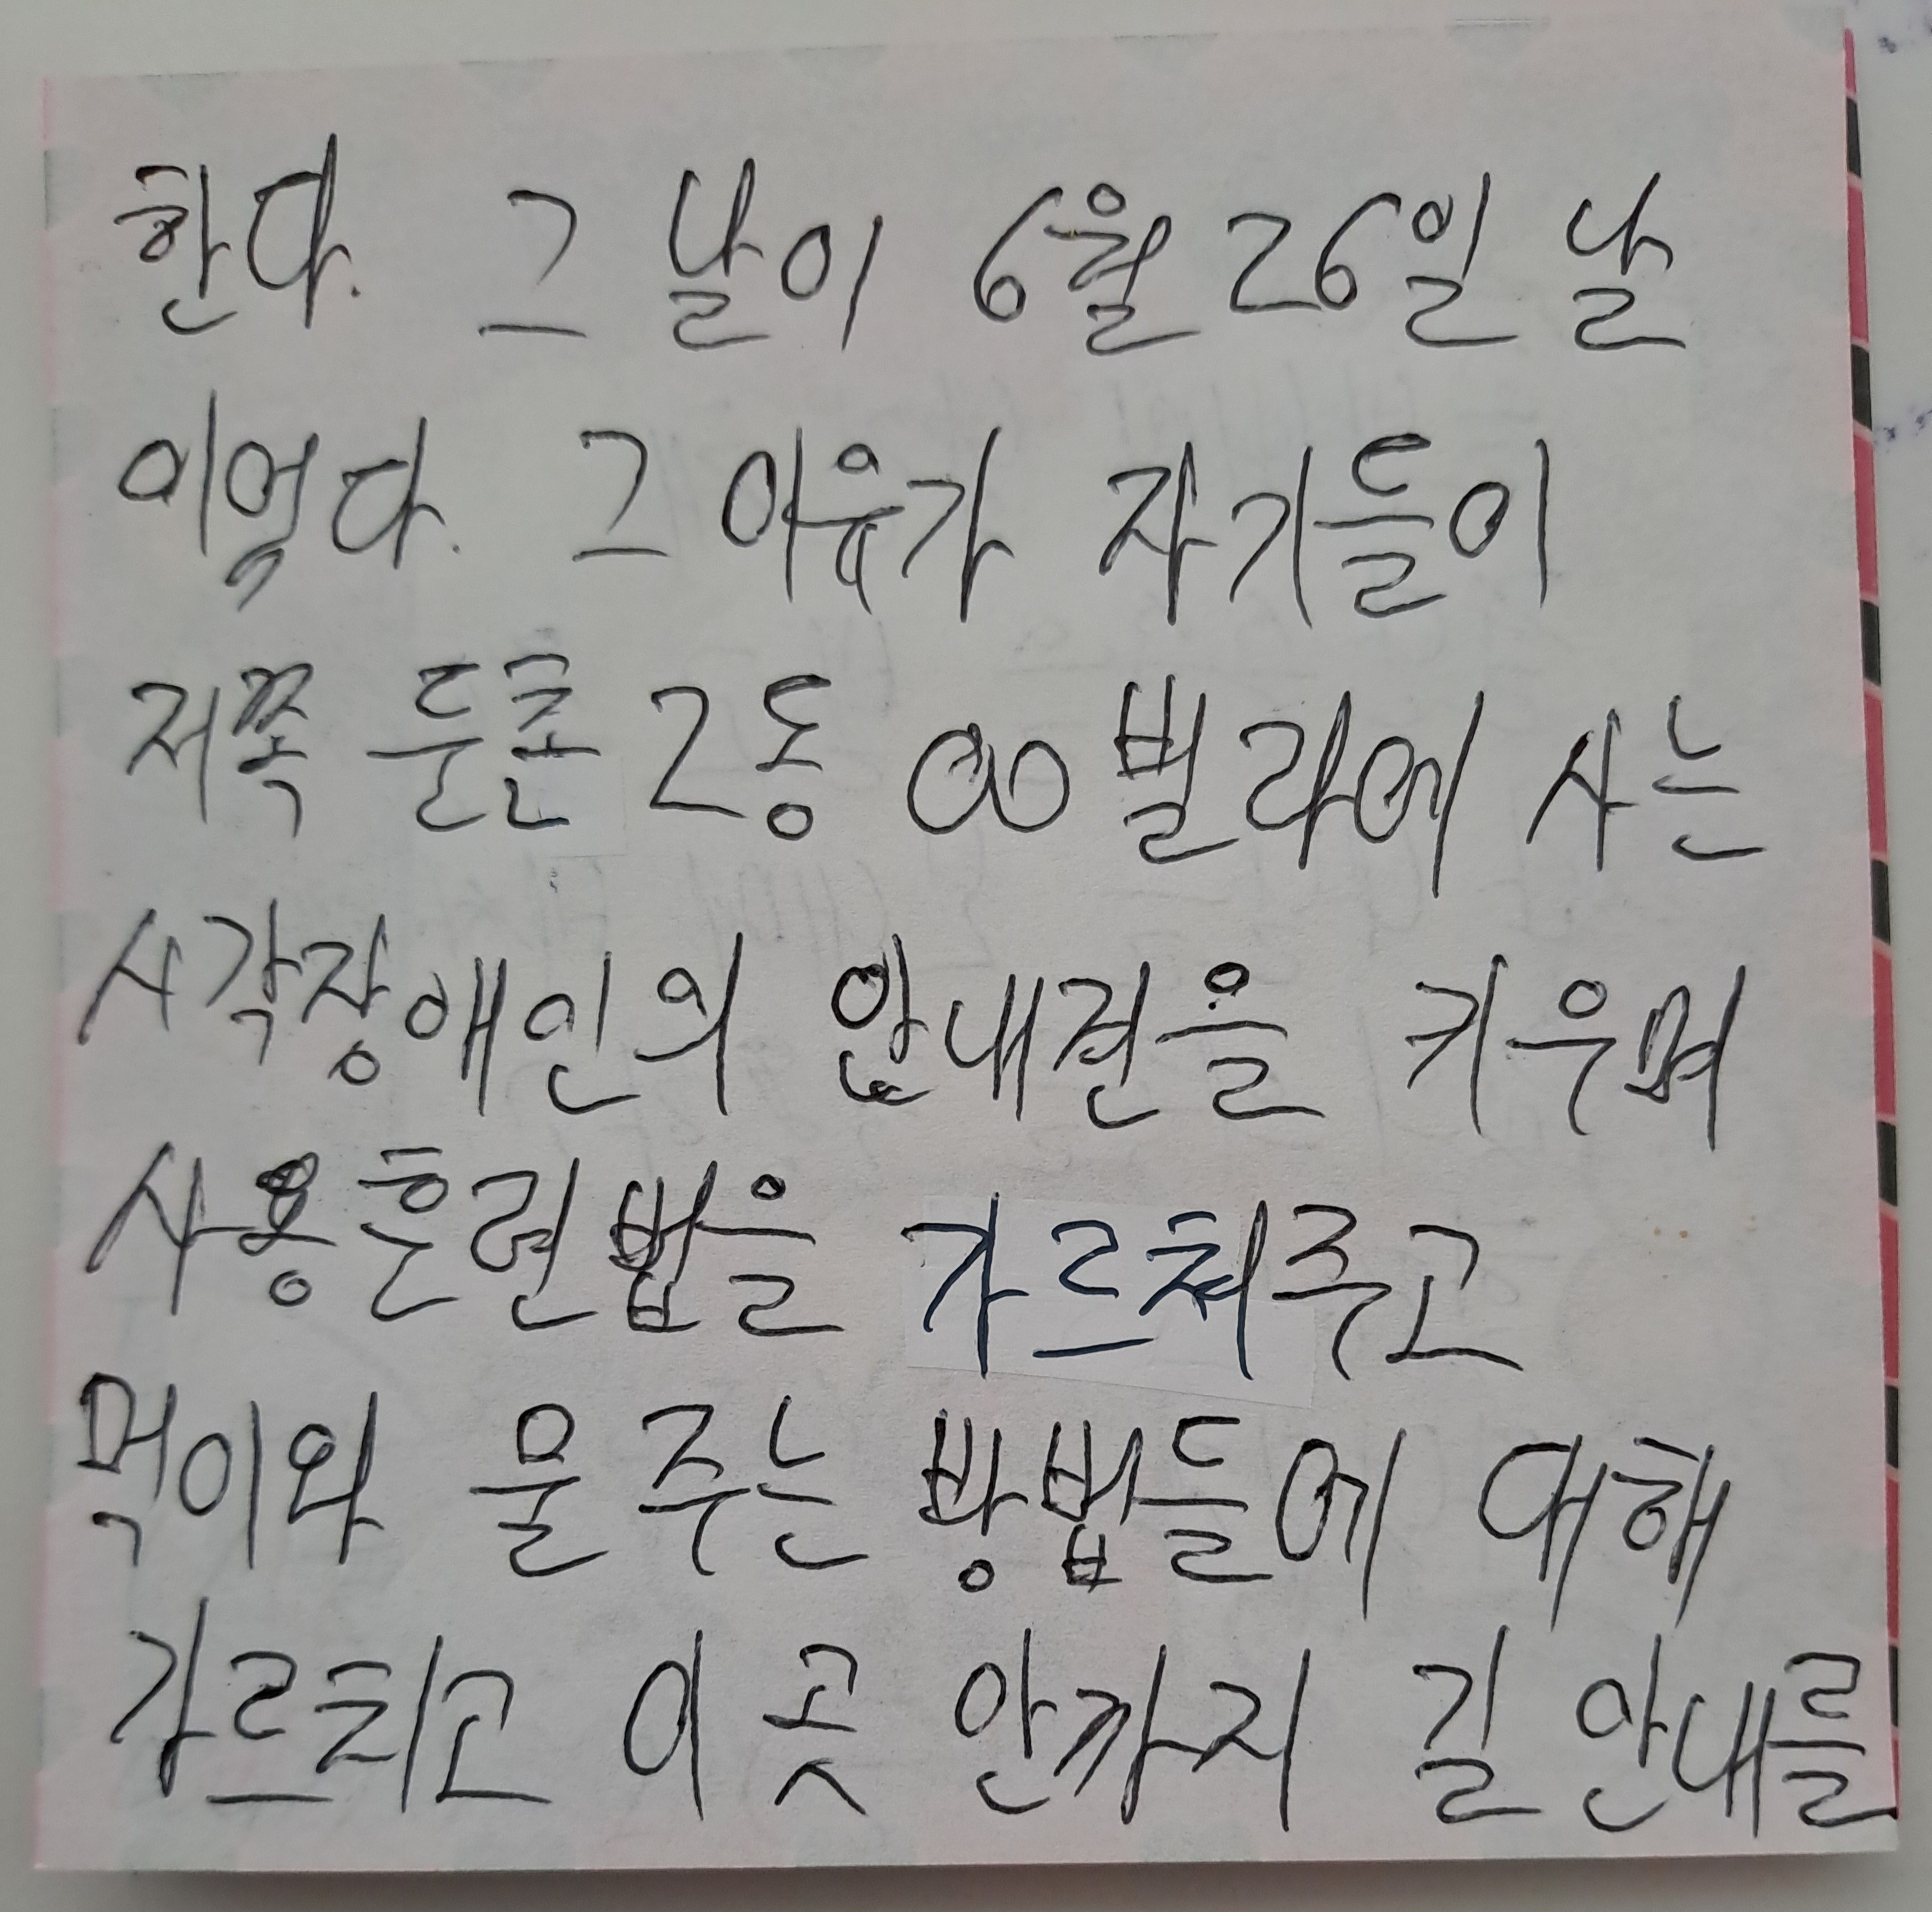 한다. 그 날이 6월 26일 날
이었다. 그 이유가 자기들이
저쪽 둔촌 2동 00 빌라에 사는
시각장애인의 안내견을 키우며
사용훈련법을 가르쳐주고
먹이와 물 주는 방법들에 대해
가르치고 이 곳 안까지 길 안내를